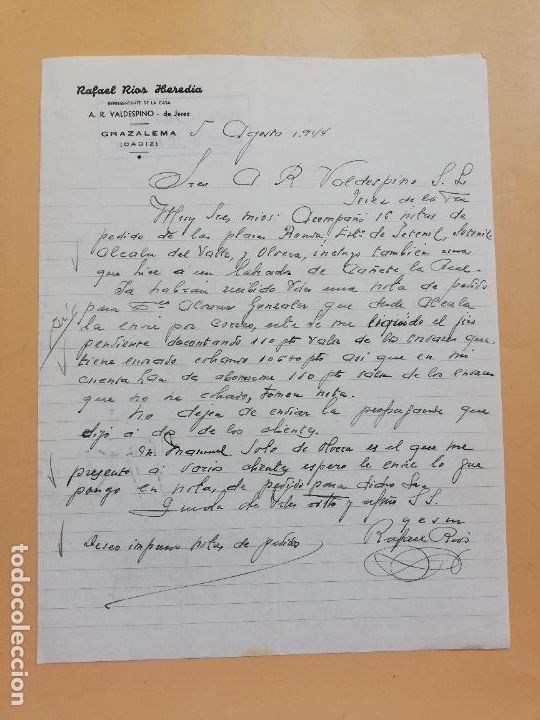 Rafael Rios Heredia
REPRESENTANTE DE LA CASA
A. R. VALDESPINO - de Jerez
GRAZALEMA
(CADIZ)
5 Agosto 1.944
Sres A R Valdespino S. L.
Jerez de la Fra
Muy Sres mios: Acompaño 16 notas de
pedido de las plazas Ronda, de Setenil,
Alcala del Valle, y Olvera, incluyo tambien una
que hice a un Labrador de Cañete la Real.
Ya habran recibido Vdes una nota de pedido
para Alvarez Gonzalez que desde Alcala
la envie por correo, este Sr me liquido el giro
pendiente descontando 110 pts valor de los envases que
tiene enviado cobrando 106'00 pts asi que en mi
cuenta han de abonarme 110 pts valor de los envases
que no he cobrado, tomen nota.
No dejen de enviar la propaganda que
dijo a de los clientes.
Sr. Manuel Soto de Olvera es el que me
presento a varios clientes espero le envie lo que
pongo en notas de pedido para dicho Sr.
Queda de Vdes atto y afmo S.S.
q e s m
Rafael Rios
Deseo impresos notas de pedido
todocoleccion